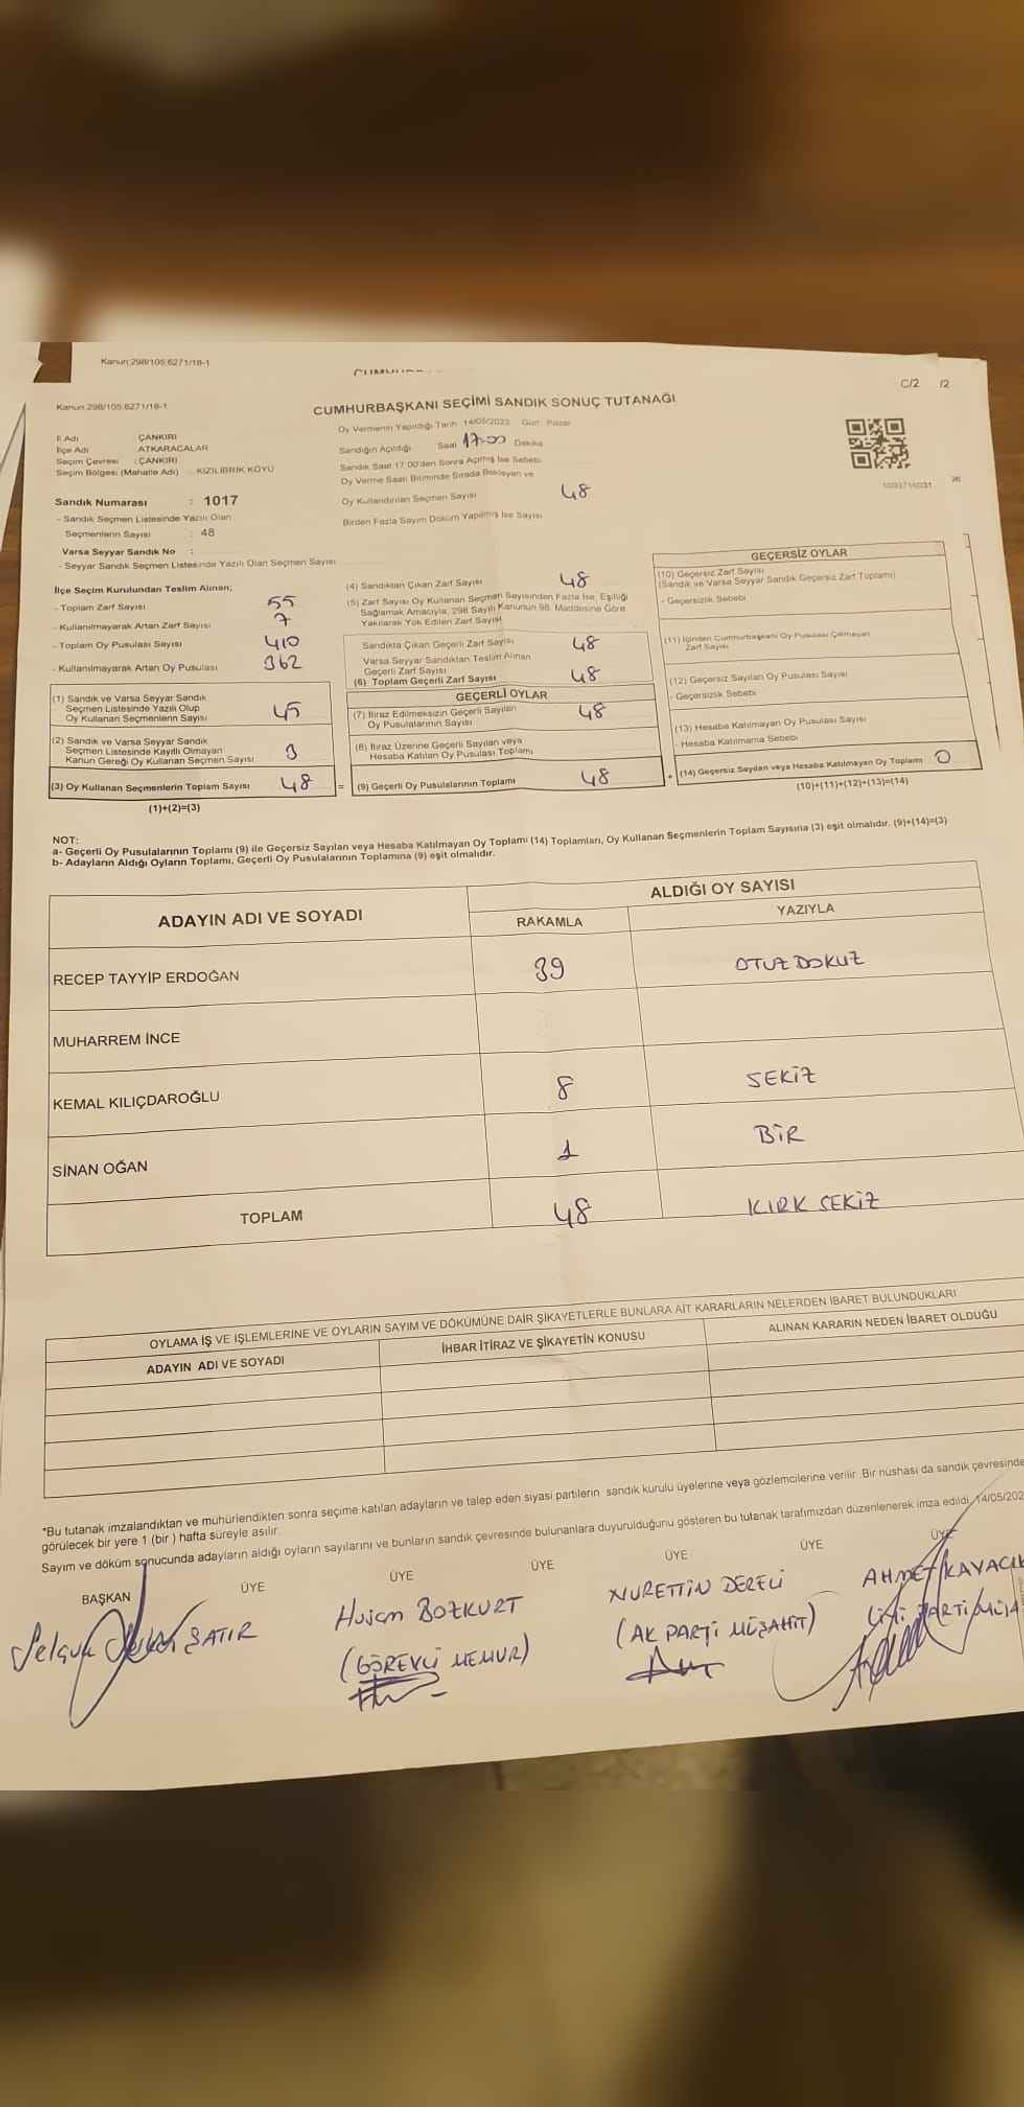 Kanun 298/105 6271/18-1
C/2 /2
Kanun 298/105 6271/18-1
CUMHURBAŞKANI SEÇİMİ SANDIK SONUÇ TUTANAĞI
İl Adı ÇANKIRI
İlçe Adı ATKARACALAR
Seçim Çevresi : ÇANKIRI
Seçim Bölgesi (Mahalle Adı) KIZILIBRIK KÖYÜ
Sandık Numarası : 1017
- Sandık Seçmen Listesinde Yazılı Olan
Seçmenlerin Sayısı : 48
Varsa Seyyar Sandık No :
- Seyyar Sandık Seçmen Listesinde Yazılı Olan Seçmen Sayısı
Oy Vermenin Yapıldığı Tarih 14/05/2023 Gün: Pazar
Sandığın Açıldığı Saat 17:00 Dakika
Sandık Saat 17:00'den Sonra Açılmış İse Sebebi
Oy Verme Saati Bitiminde Sırada Bekleyen ve
Oy Kullandırılan Seçmen Sayısı 48
Birden Fazla Sayım Döküm Yapılmış İse Sayısı
İlçe Seçim Kurulundan Teslim Alınan;
- Toplam Zarf Sayısı 55
- Kullanılmayarak Artan Zarf Sayısı 7
- Toplam Oy Pusulası Sayısı 410
- Kullanılmayarak Artan Oy Pusulası 362
(1) Sandık ve Varsa Seyyar Sandık
Seçmen Listesinde Yazılı Olup
Oy Kullanan Seçmenlerin Sayısı 45
(2) Sandık ve Varsa Seyyar Sandık
Seçmen Listesinde Kayıtlı Olmayan
Kanun Gereği Oy Kullanan Seçmen Sayısı 3
(3) Oy Kullanan Seçmenlerin Toplam Sayısı 48 =
(1)+(2)=(3)
(4) Sandıktan Çıkan Zarf Sayısı 48
(5) Zarf Sayısı Oy Kullanan Seçmen Sayısından Fazla İse, Eşitliği
Sağlamak Amacıyla, 298 Sayılı Kanunun 98. Maddesine Göre
Yakılarak Yok Edilen Zarf Sayısı
Sandıkta Çıkan Geçerli Zarf Sayısı 48
Varsa Seyyar Sandıktan Teslim Alınan
Geçerli Zarf Sayısı
(6) Toplam Geçerli Zarf Sayısı 48
GEÇERLİ OYLAR
(7) İtiraz Edilmeksizin Geçerli Sayılan
Oy Pusulalarının Sayısı 48
(8) İtiraz Üzerine Geçerli Sayılan veya
Hesaba Katılan Oy Pusulası Toplamı
(9) Geçerli Oy Pusulalarının Toplamı 48 +
GEÇERSİZ OYLAR
(10) Geçersiz Zarf Sayısı
(Sandık ve Varsa Seyyar Sandık Geçersiz Zarf Toplamı)
- Geçersizlik Sebebi
(11) İçinden Cumhurbaşkanı Oy Pusulası Çıkmayan
Zarf Sayısı
(12) Geçersiz Sayılan Oy Pusulası Sayısı
- Geçersizlik Sebebi
(13) Hesaba Katılmayan Oy Pusulası Sayısı
- Hesaba Katılmama Sebebi
(14) Geçersiz Sayılan veya Hesaba Katılmayan Oy Toplamı 0
(10)+(11)+(12)+(13)=(14)
NOT:
a- Geçerli Oy Pusulalarının Toplamı (9) ile Geçersiz Sayılan veya Hesaba Katılmayan Oy Toplamı (14) Toplamları, Oy Kullanan Seçmenlerin Toplam Sayısına (3) eşit olmalıdır. (9)+(14)=(3)
b- Adayların Aldığı Oyların Toplamı, Geçerli Oy Pusulalarının Toplamına (9) eşit olmalıdır.
ADAYIN ADI VE SOYADI
ALDIĞI OY SAYISI
RAKAMLA YAZIYLA
RECEP TAYYİP ERDOĞAN 39 OTUZ DOKUZ
MUHARREM İNCE
KEMAL KILIÇDAROĞLU 8 SEKİZ
SİNAN OĞAN 1 BİR
TOPLAM 48 KIRK SEKİZ
OYLAMA İŞ VE İŞLEMLERİNE VE OYLARIN SAYIM VE DÖKÜMÜNE DAİR ŞİKAYETLERLE BUNLARA AİT KARARLARIN NELERDEN İBARET BULUNDUKLARI
ADAYIN ADI VE SOYADI İHBAR İTİRAZ VE ŞİKAYETİN KONUSU ALINAN KARARIN NEDEN İBARET OLDUĞU
*Bu tutanak imzalandıktan ve mühürlendikten sonra seçime katılan adayların ve talep eden siyasi partilerin sandık kurulu üyelerine veya gözlemcilerine verilir. Bir nüshası da sandık çevresinde
görülecek bir yere 1 (bir) hafta süreyle asılır.
Sayım ve döküm sonucunda adayların aldığı oyların sayılarını ve bunların sandık çevresinde bulunanlara duyurulduğunu gösteren bu tutanak tarafımızdan düzenlenerek imza edildi. 14/05/202
BAŞKAN ÜYE ÜYE ÜYE ÜYE ÜYE ÜYE
Selçuk SATIR
Husam BOZKURT
(GÖREVLİ MEMUR)
NURETTİN DERELİ
(AK PARTİ MÜŞAHİT)
AHMET KAYACIK
İYİ PARTİ